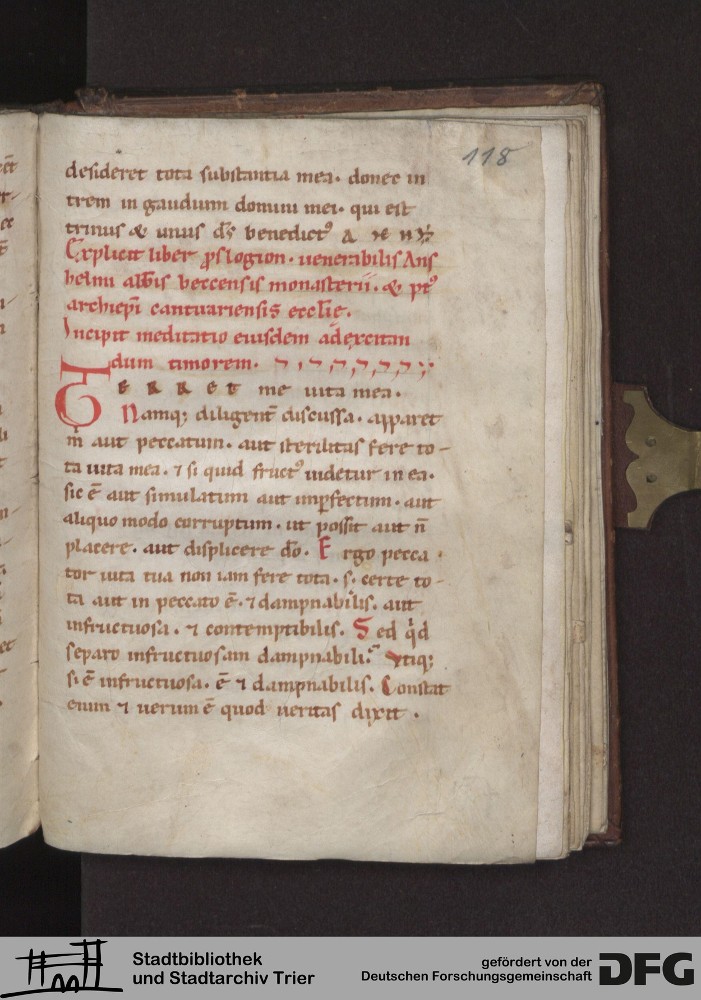 118
desideret tota substantia mea. donec in
trem in gaudium domini mei. qui est
trinus & unus ds̄ benedictꝰ
Explicit liber ꝓslogion. uenerabilis Ans
helmi abb̄is beccensis monasterii. & pꝰt
archiepi cantuariensis eccl̄ie.
Incipit meditatio eiusdem ad excitan
dum timorem.
TERRET me uita mea.
Namq; diligent̄ discussa. apparet
m̄ aut peccatum. aut sterilitas fere to-
ta uita mea. ⁊ si quid fructꝰ uidetur in ea.
sic ē aut simulatum aut inꝑfectum. aut
aliquo modo corruptum. ut possit aut n̄
placere. aut displicere dō. Ergo pecca.
tor uita tua non iam fere tota. s. certe to-
ta aut in peccato ē. ⁊ dampnabilis. aut
infructuosa. ⁊ contemptibilis. Sed qͥd
separo infructuosam dampnabili. Vtiq;
si ē infructuosa. ē ⁊ dampnabilis. Constat
enim ⁊ uerum ē quod ueritas dixit.
Stadtbibliothek
und Stadtarchiv Trier
gefördert von der
Deutschen Forschungsgemeinschaft
DFG